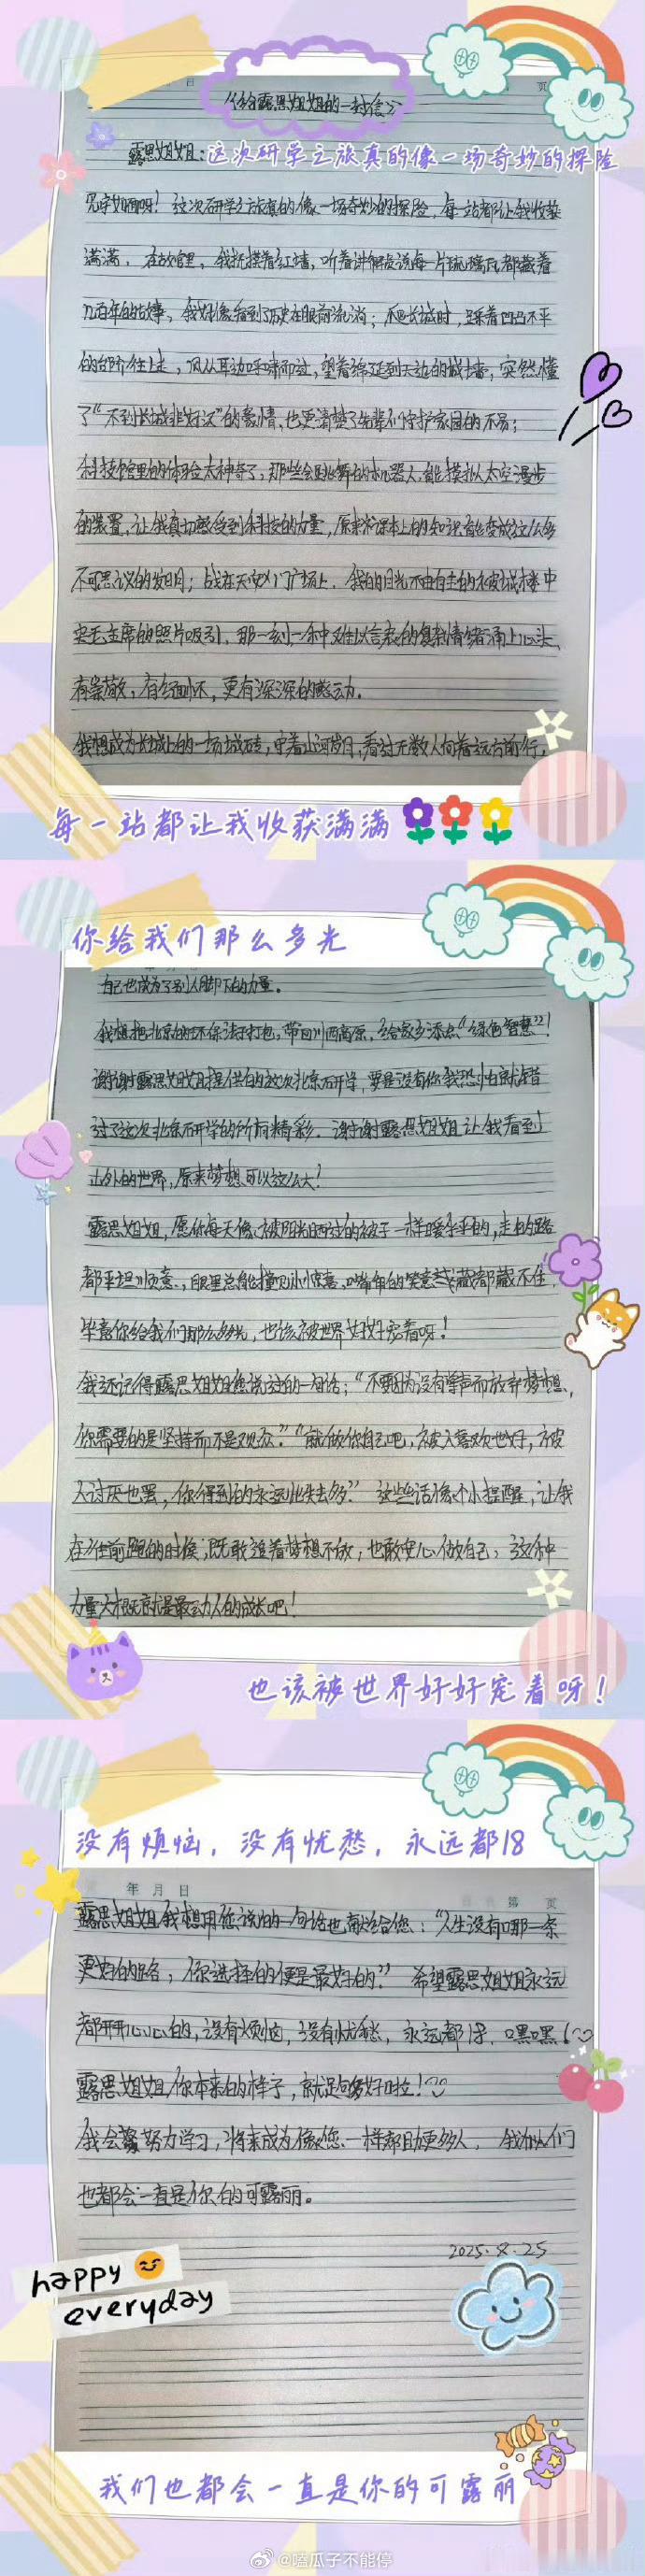 《给露思姐姐的一封信》
露思姐姐：
这次研学之旅真的像一场奇妙的探险
见字如晤呀！这次研学之旅真的像一场奇妙的探险，每一站都让我收获
满满，在故宫里，我抚摸着红墙，听着讲解员说每一片琉璃瓦都藏着
几百年的故事，我好像看到了历史在眼前流淌；爬长城时，踩着凹凸不平
的台阶往上走，风从耳边呼啸而过，望着绵延到天边的城墙，突然懂
了“不到长城非好汉”的豪情，也更清楚了先辈们守护家园的不易；
科技馆里的体验太神奇了，那些会跳舞的机器人，能模拟太空漫步
的装置，让我真切感受到科技的力量，原来课本上的知识能变成这么多
不可思议的发明；站在天安门广场上，我的目光不由自主的被城楼中
央毛主席的照片吸引，那一刻，一种难以言表的复杂情绪涌上心头，
有崇敬，有缅怀，更有深深的感动。
我想成为长城上的一块城砖，望着山河岁月，看过无数人向着远方前行，
每一站都让我收获满满
你给我们那么多光
自己也成为了别人脚下的力量。
我想把北京的环保法子打包，带回川西高原，给家乡添点“绿色智慧”！
谢谢露思姐姐提供的这次北京研学，要是没有你我恐怕就错
过了这次北京研学的所有精彩，谢谢露思姐姐让我看到
山外的世界，原来梦想可以这么大！
露思姐姐，愿你每天像被阳光晒过的被子一样暖乎乎的，走的路
都平坦顺意，眼里总能撞见小惊喜，嘴角的笑意藏都藏不住，
毕竟你给我们那么多光，也该被世界好好宠着呀！
我还记得露思姐姐您说过的一句话；“不要因为没有掌声而放弃梦想，
你需要的是坚持而不是观众。”“就做你自己吧，被人喜欢也好，被
人讨厌也罢，你得到的永远比失去多。”这些话像个小提醒，让我
在往前跑的时候，既敢追着梦想不放，也敢安心做自己，这种
力量大概就是最动人的成长吧！
也该被世界好好宠着呀！
没有烦恼，没有忧愁，永远都18
年 月 日
第 页
露思姐姐我想用您说的一句话也献给您：“人生没有哪一条
更好的路，你选择的便是最好的。”希望露思姐姐永远
都开开心心的，没有烦恼，没有忧愁，永远都18，嘿嘿！
露思姐姐你本来的样子，就足够好啦！
我会努力学习，将来成为像您一样帮助更多人，我们
也都会一直是你的可露丽。
2025.8.25
happy
everyday
我们也都会一直是你的可露丽
@嗑瓜子不能停